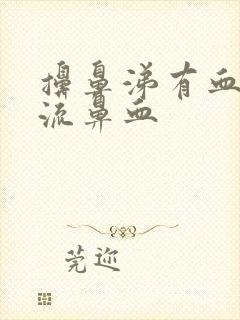 擤鼻涕有血
流鼻血
莞迩